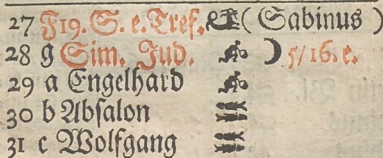 27 F19. S. e. Tref. ( Sabinus )
28 g Sim. Jud. ☽ 5/16. e.
29 a Engelhard
30 b Absalon
31 c Wolfgang